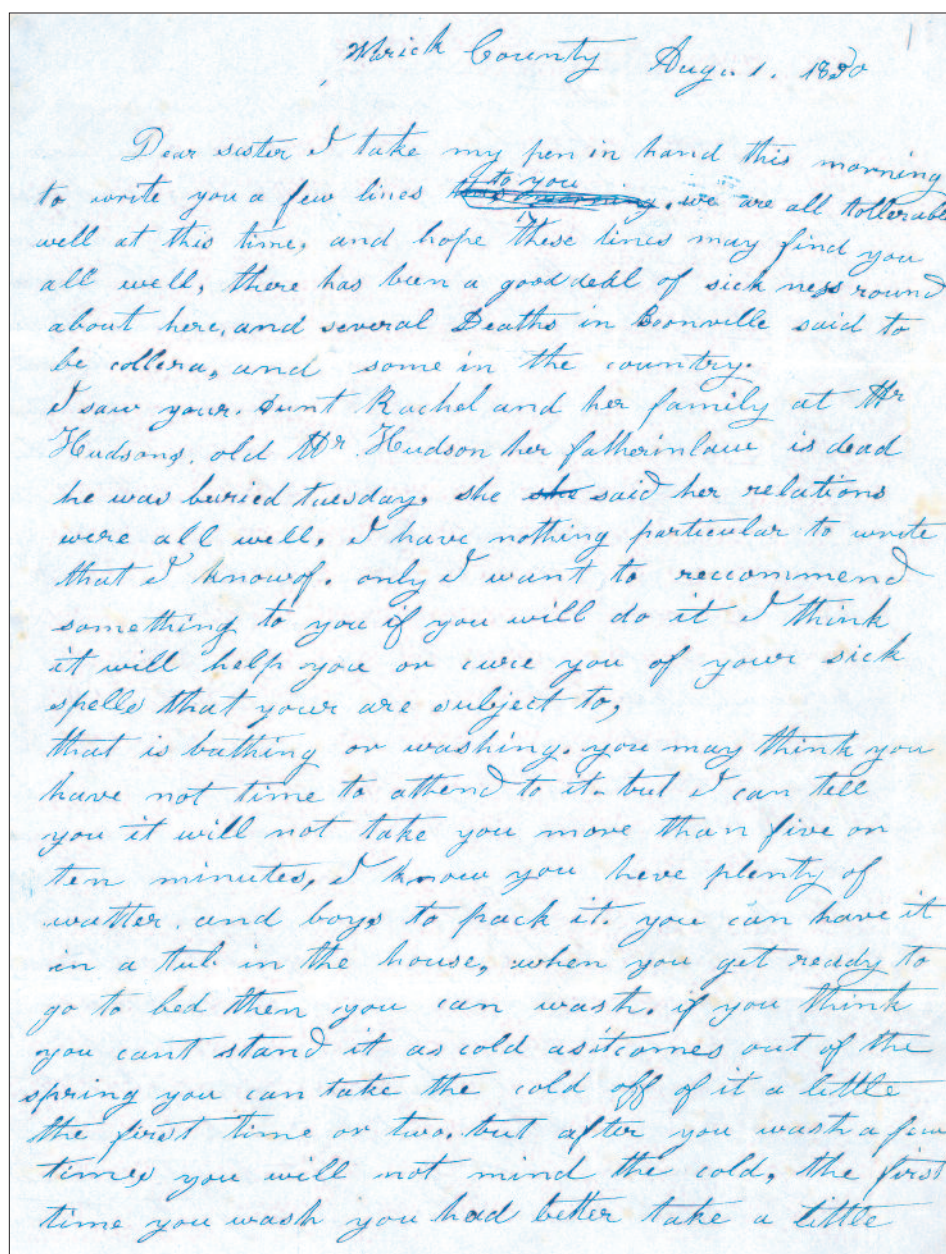 1
Wrick County Aug. 1. 1850
Dear sister I take my pen in hand this morning
to you
to write you a few lines this morning, we are all tollerable
well at this time, and hope these lines may find you
all well, there has been a good deal of sick ness round
about here, and several Deaths in Boonville said to
be collera, and some in the country.
I saw your. Aunt Rachel and her family at Mr
Hudsons. old Mr. Hudson her fatherinlaw is dead
he was buried tuesday. she she said her relations
were all well, I have nothing particular to write
that I knowof. only I want to reccommend
something to you if you will do it I think
it will help you or cure you of your sick
spells that your are subject to,
that is bathing or washing. you may think you
have not time to attend to it. but I can tell
you it will not take you more than five or
ten minutes, I know you heve plenty of
watter. and boys to pack it. you can have it
in a tub. in the house, when you get ready to
go to bed then you can wash. if you think
you cant stand it as cold asitcomes out of the
spring you can take the cold off of it a little
the first time or two. but after you wash a few
times you will not mind the cold, the first
time you wash you had better take a little